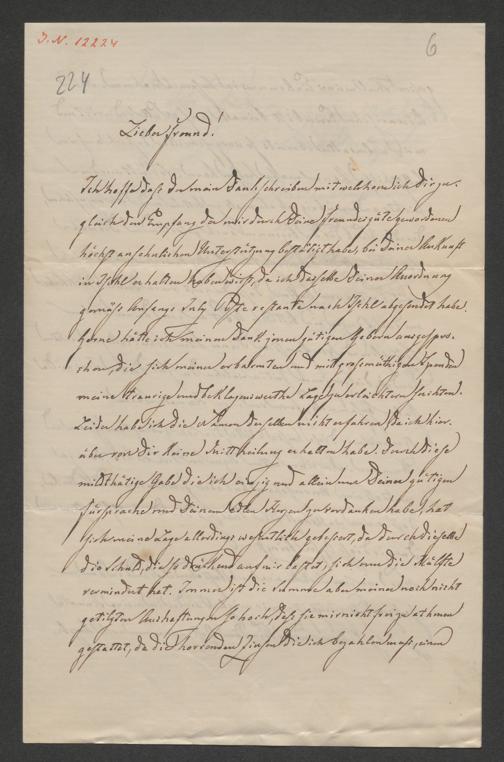 J. N. 12224
6
224
Lieber Freund!
Ich hoffe daß du mein Dankschreiben mit welchem ich dir zu-
gleich den Empfang der mir durch deine Freundesgüte gewordenen
höchst ansehnlichen Unterstützung bestätigt habe, bei deiner Ankunft
in Ischl erhalten haben wirst, da ich dasselbe deiner Anordnung
gemäß Anfangs July Poste restante nach Ischl abgesendet habe.
Gerne hätte ich meinen Dank jenen gütigen Gebern ausgespro-
chen, die sich meiner erbarmten und mit großmüthigen Spenden
meine traurige und beklagenswerthe Lage zu erleichtern suchten.
Leider habe ich die Namen derselben nicht erfahren, da ich hier-
über von dir keine Mittheilung erhalten habe. Durch diese
mildthätige Gabe die ich einzig und allein nur deiner gütigen
Fürsprache und deinem edlen Herzen zu verdanken habe, hat
sich meine Lage allerdings wesentlich gebessert, da durch dieselbe
die Schuld, die so drückend auf mir lastet, sich um die Hälfte
vermindert hat. Immer ist die Summe aber meiner noch nicht
getilgten Aushaftungen so hoch, daß sie mir nicht frei zu athmen
gestattet, da die horrenden Zinsen die ich bezahlen muß, einen